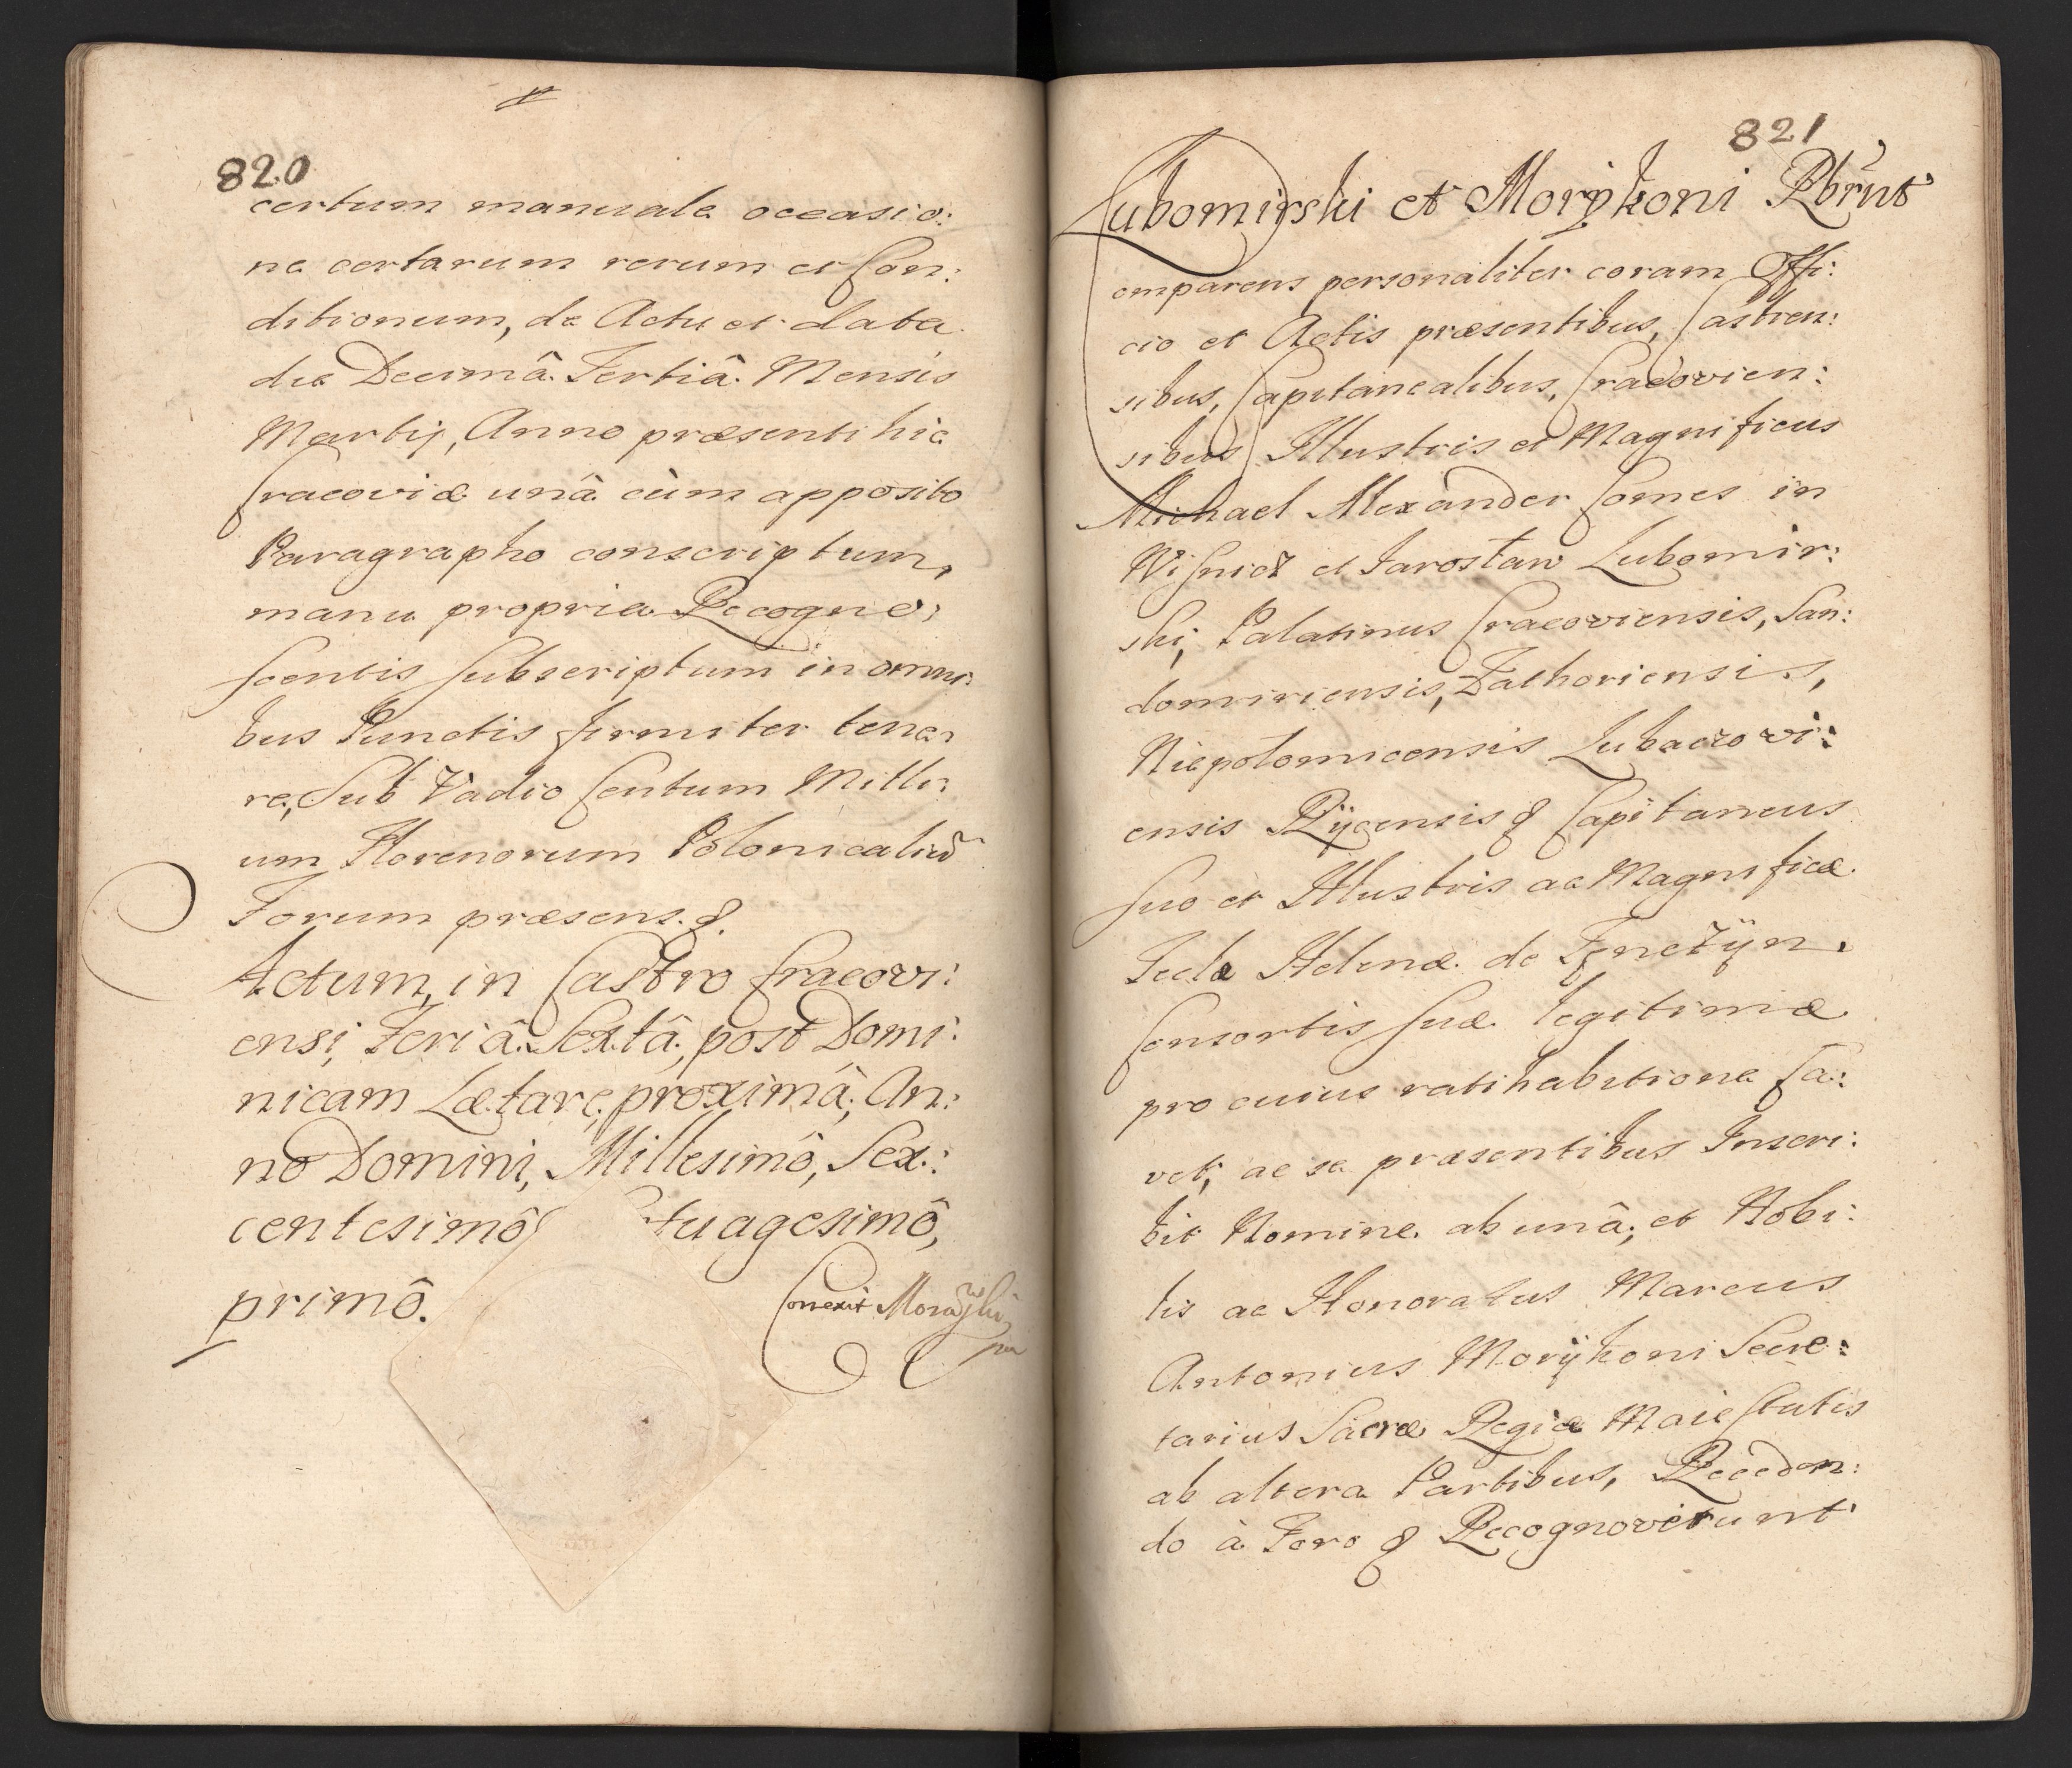 820
certum manuale occasio:
ne certarum rerum et Con:
ditionum, de Actu et data
die Decimâ Tertiâ Mensis
Martij, Anno præsenti hic
Cracoviæ unâ cùm apposito
Paragrapho conscriptum,
manu propria Recogno:
scentis subscriptum in omni:
bus Punctis firmiter tene:
re, Sub Vadio Centum Milli:
um Florenorum Polonicaliũ
Forum præsens.
Actum, in Castro Cracovi:
ensi, Feriâ Sextâ, post Domi:
nicam Lætare, proximâ; An:
no Domini, Millesimô, Sex:
centesimô tuagesimô,
primô.
Correxit
821
Lubomirski et Morykoni Rbrnt
omparens personaliter coram Offi:
cio et Actis præsentibus, Castren:
sibus, Capitanealibus, Cracovien:
sibus Illustris et Magnificus
Michael Alexander Comes in
Wisnicz et Jarosław Lubomir:
ski, Palatinus Cracoviensis, San:
domiriensis, Zathoriensis,
Niepolomicensis Lubaczovi:
ensis Rycensis Capitaneus
suo et Illustris ac Magnificæ
Teclæ Helenæ de Tenczÿn
Consortis suæ legitimæ
pro cuius ratihabitione Ca:
vet, ac se præsentibus Inscri:
bit Nomine ab unâ; et Nobi:
lis ac Honoratus Marcus
Antonius Morÿkoni Secre:
tarius Sacræ Regiæ Maiestatis
ab altera Partibus, Receden:
do à Foro Recognoverunt